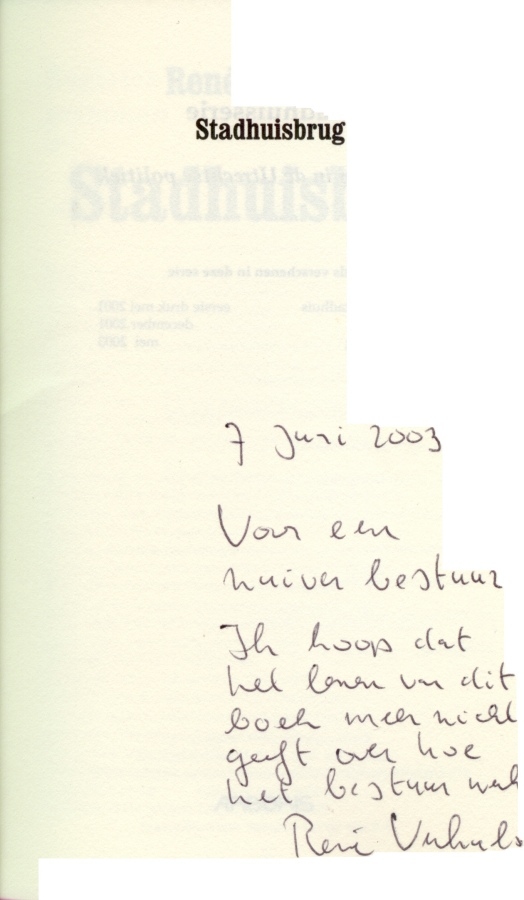 Stadhuisbrug
7 Juni 2003
Voor een
zuiver bestuur
Ik hoop dat
het lezen van dit
boek meer
geeft over hoe
het bestuur
René